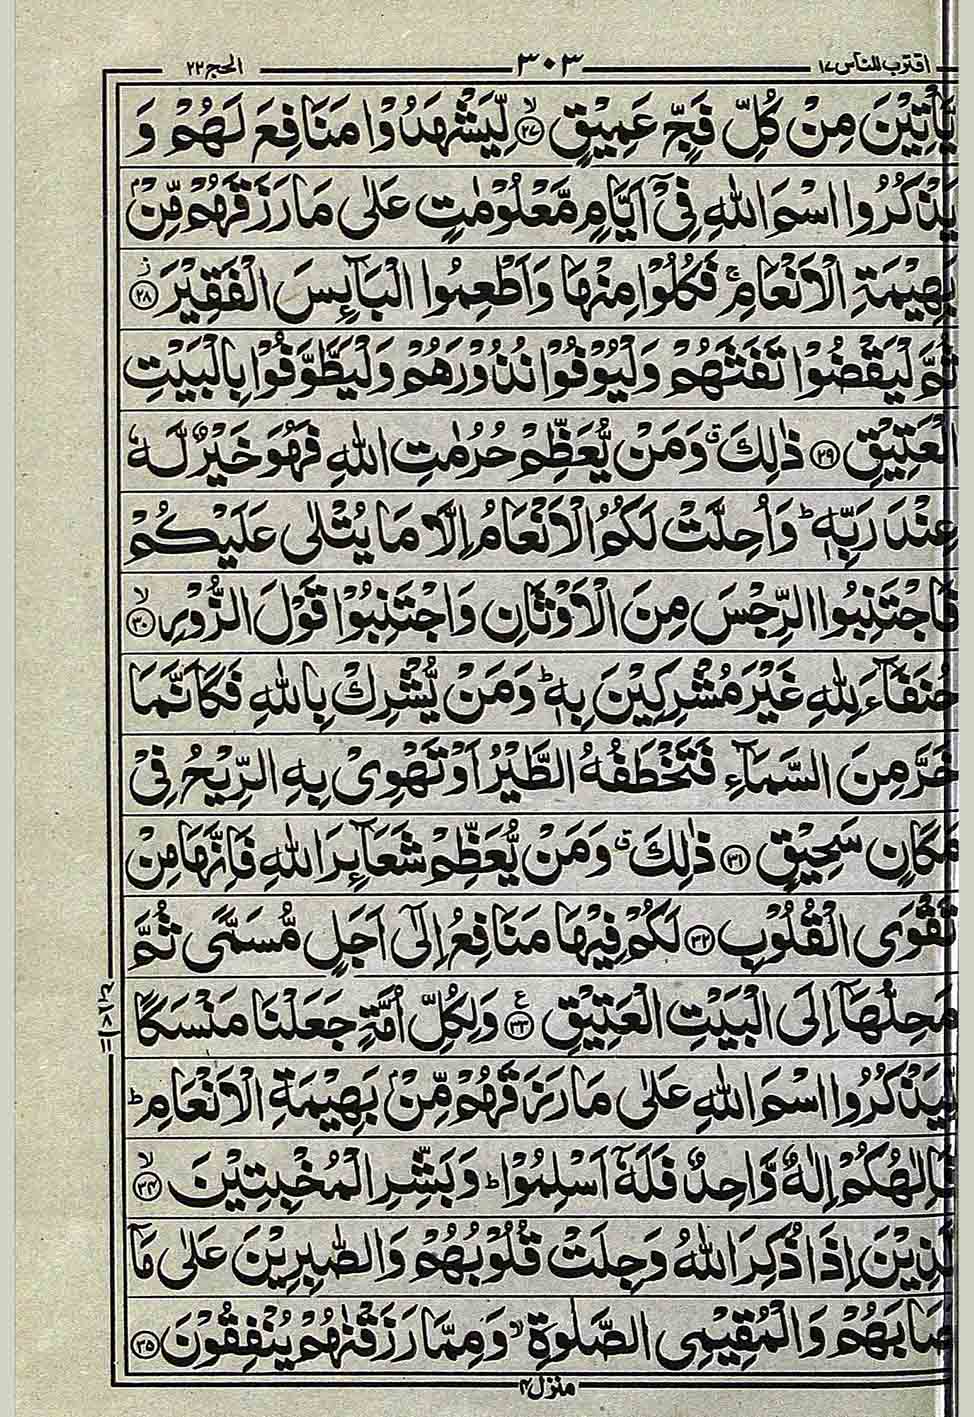 اقترب للناس ١٧ ٣٠٣ الحج ٢٢
يَّاْتِيْنَ مِنْ كُلِّ فَجٍّ عَمِيْقٍ ۙ﴿۲۷﴾ لِّيَشْهَدُوْا مَنَافِعَ لَهُمْ وَ
يَذْكُرُوا اسْمَ اللّٰهِ فِيْۤ اَيَّامٍ مَّعْلُوْمٰتٍ عَلٰى مَا رَزَقَهُمْ مِّنْۢ
بَهِيْمَةِ الْاَنْعَامِ ۚ فَكُلُوْا مِنْهَا وَاَطْعِمُوا الْبَآىِٕسَ الْفَقِيْرَ ؗ﴿۲۸﴾
ثُمَّ لْيَقْضُوْا تَفَثَهُمْ وَلْيُوْفُوْا نُذُوْرَهُمْ وَلْيَطَّوَّفُوْا بِالْبَيْتِ
الْعَتِيْقِ ﴿۲۹﴾ ذٰلِكَ ۗ وَمَنْ يُّعَظِّمْ حُرُمٰتِ اللّٰهِ فَهُوَ خَيْرٌ لَّهٗ
عِنْدَ رَبِّهٖ ؕ وَاُحِلَّتْ لَكُمُ الْاَنْعَامُ اِلَّا مَا يُتْلٰى عَلَيْكُمْ
فَاجْتَنِبُوا الرِّجْسَ مِنَ الْاَوْثَانِ وَاجْتَنِبُوْا قَوْلَ الزُّوْرِ ۙ﴿۳۰﴾
حُنَفَآءَ لِلّٰهِ غَيْرَ مُشْرِكِيْنَ بِهٖ ؕ وَمَنْ يُّشْرِكْ بِاللّٰهِ فَكَاَنَّمَا
خَرَّ مِنَ السَّمَآءِ فَتَخْطَفُهُ الطَّيْرُ اَوْ تَهْوِيْ بِهِ الرِّيْحُ فِيْ
مَكَانٍ سَحِيْقٍ ﴿۳۱﴾ ذٰلِكَ ۗ وَمَنْ يُّعَظِّمْ شَعَآىِٕرَ اللّٰهِ فَاِنَّهَا مِنْ
تَقْوَى الْقُلُوْبِ ﴿۳۲﴾ لَكُمْ فِيْهَا مَنَافِعُ اِلٰۤى اَجَلٍ مُّسَمًّى ثُمَّ
مَحِلُّهَاۤ اِلَى الْبَيْتِ الْعَتِيْقِ ﴿۳۳﴾ وَلِكُلِّ اُمَّةٍ جَعَلْنَا مَنْسَكًا
لِّيَذْكُرُوا اسْمَ اللّٰهِ عَلٰى مَا رَزَقَهُمْ مِّنْۢ بَهِيْمَةِ الْاَنْعَامِ ؕ
فَاِلٰهُكُمْ اِلٰهٌ وَّاحِدٌ فَلَهٗۤ اَسْلِمُوْا ؕ وَبَشِّرِ الْمُخْبِتِيْنَ ۙ﴿۳۴﴾
الَّذِيْنَ اِذَا ذُكِرَ اللّٰهُ وَجِلَتْ قُلُوْبُهُمْ وَالصّٰبِرِيْنَ عَلٰى مَاۤ
اَصَابَهُمْ وَالْمُقِيْمِي الصَّلٰوةِ ۙ وَمِمَّا رَزَقْنٰهُمْ يُنْفِقُوْنَ ﴿۳۵﴾
منزل ۴